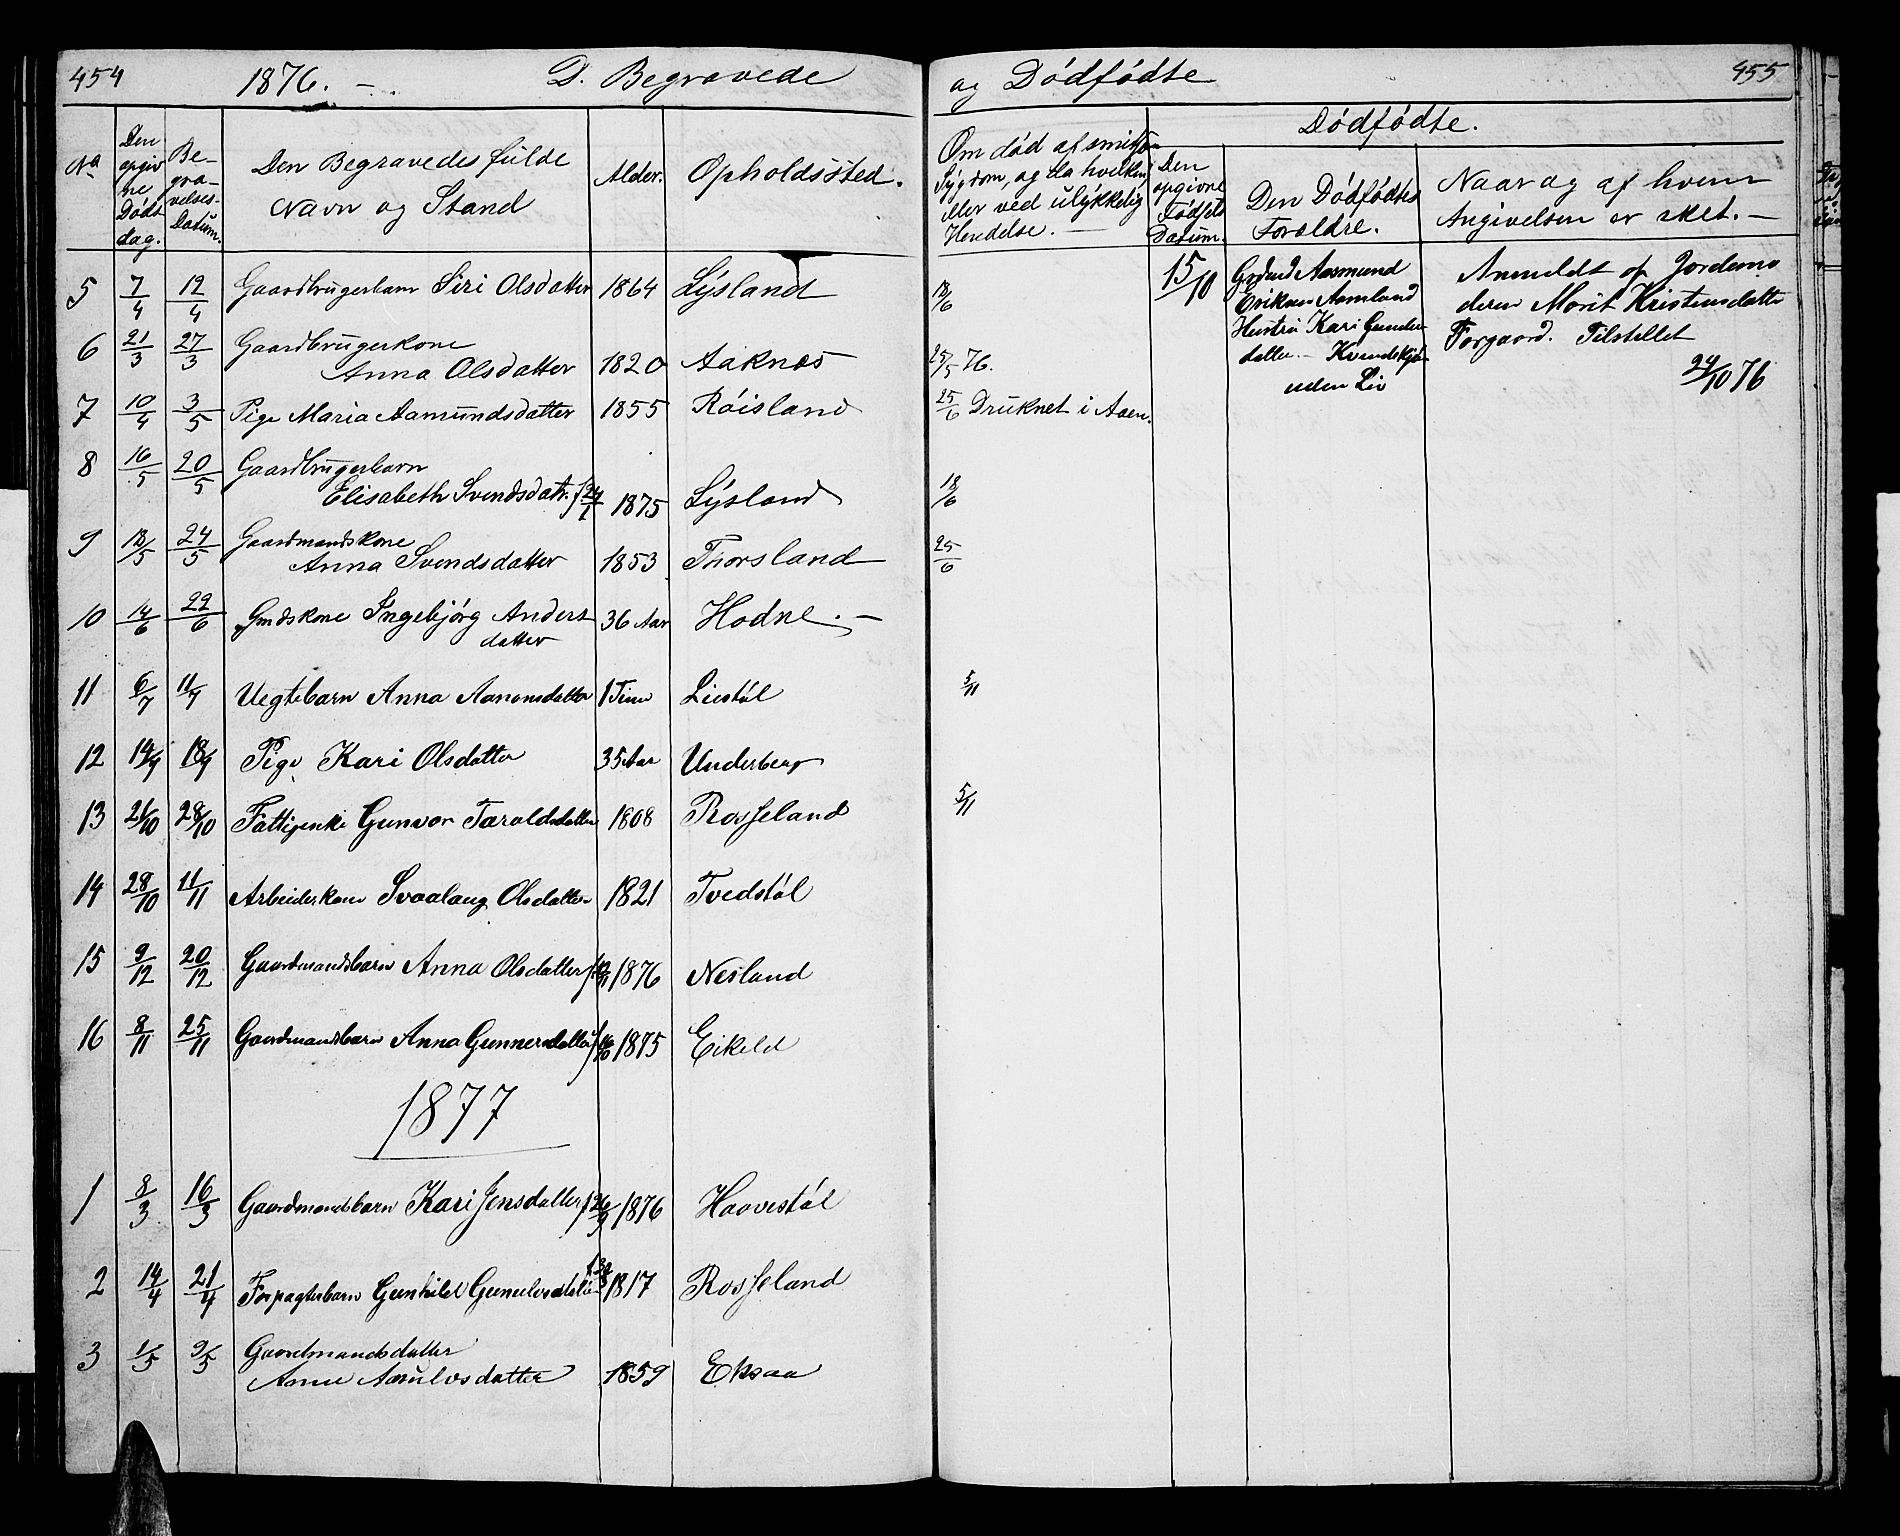 454
1876. —.
D. Begravede
Den opgivne Døds dag.
Begravelses-Datum.
Den Begravedes fulde Navn og Stand
Alder.
Opholdssted.
5 7/4 12/4 Gaardbrugerbarn Siri Olsdatter 1864 Lýsland
6 21/3 27/3 Gaardbrugerkone
Anna Olsdatter 1820 Aaknes
7 10/4 3/5 Pige Maria Aamundsdatter 1855 Røisland
8 16/5 20/5 Gaardbrugerbarn
Elisabeth Svendsdatr. f 24/1 1875 Lýsland
9 18/5 24/5 Gaardmandskone
Anna Svendsdatter 1853 Thorsland
10 14/6 22/6 Gmdskone Ingebjørg Anders
datter 36 Aar Hodne. —
11 6/7 11/7 Uegtebarn Anna Aanonsdatter 1 Time Liestøl
12 14/9 18/9 Pige Kari Olsdatter 35 Aar Underberg
13 21/10 28/10 Gunvor Taroldsdatter 1808 Rosseland
14 28/10 11/11 Arbeiderkone Svaalaug Olsdatter 1821 Tvedstøl
15 9/12 20/12 Gaardmandsbarn Anna Olsdatter 1876 Nesland
16 8/11 25/11 Gaardmandsbarn Anna Gunnersdatter 1875 Eikeld
1877
1 8/3 16/3 Gaardmandsbarn Kari Jensdatter f 26/9 1876 Haavestøl
2 14/4 21/4 Forpagterbarn Gunhild 1817 Rosseland
3 1/5 9/5 Gaardmandsdatter
Anne Aanulvsdatter 1859 Eksaa
og Dødfødte
455
Om død af smitsom
Sýgdom, og da hvilken,
eller ved ulýkkelig
Hendelse. —
Dødfødte.
Den
opgivne
Fødsels
Datum.
Den Dødfødtes
Forældre.
Naar og af hvem
Angivelsen er sket. —
18/6
25/5 76.
25/6 Druknet i Aaen.
18/6
25/6
5/11
5/11
15/10
Aasmund
Eriksen Aamland
Hustru Kari Gunders
datter. —
uden Liv
Anmeldt af Jordemo
deren Morit Kristensdatter
Forgaard. Tilstillet
24/10 76